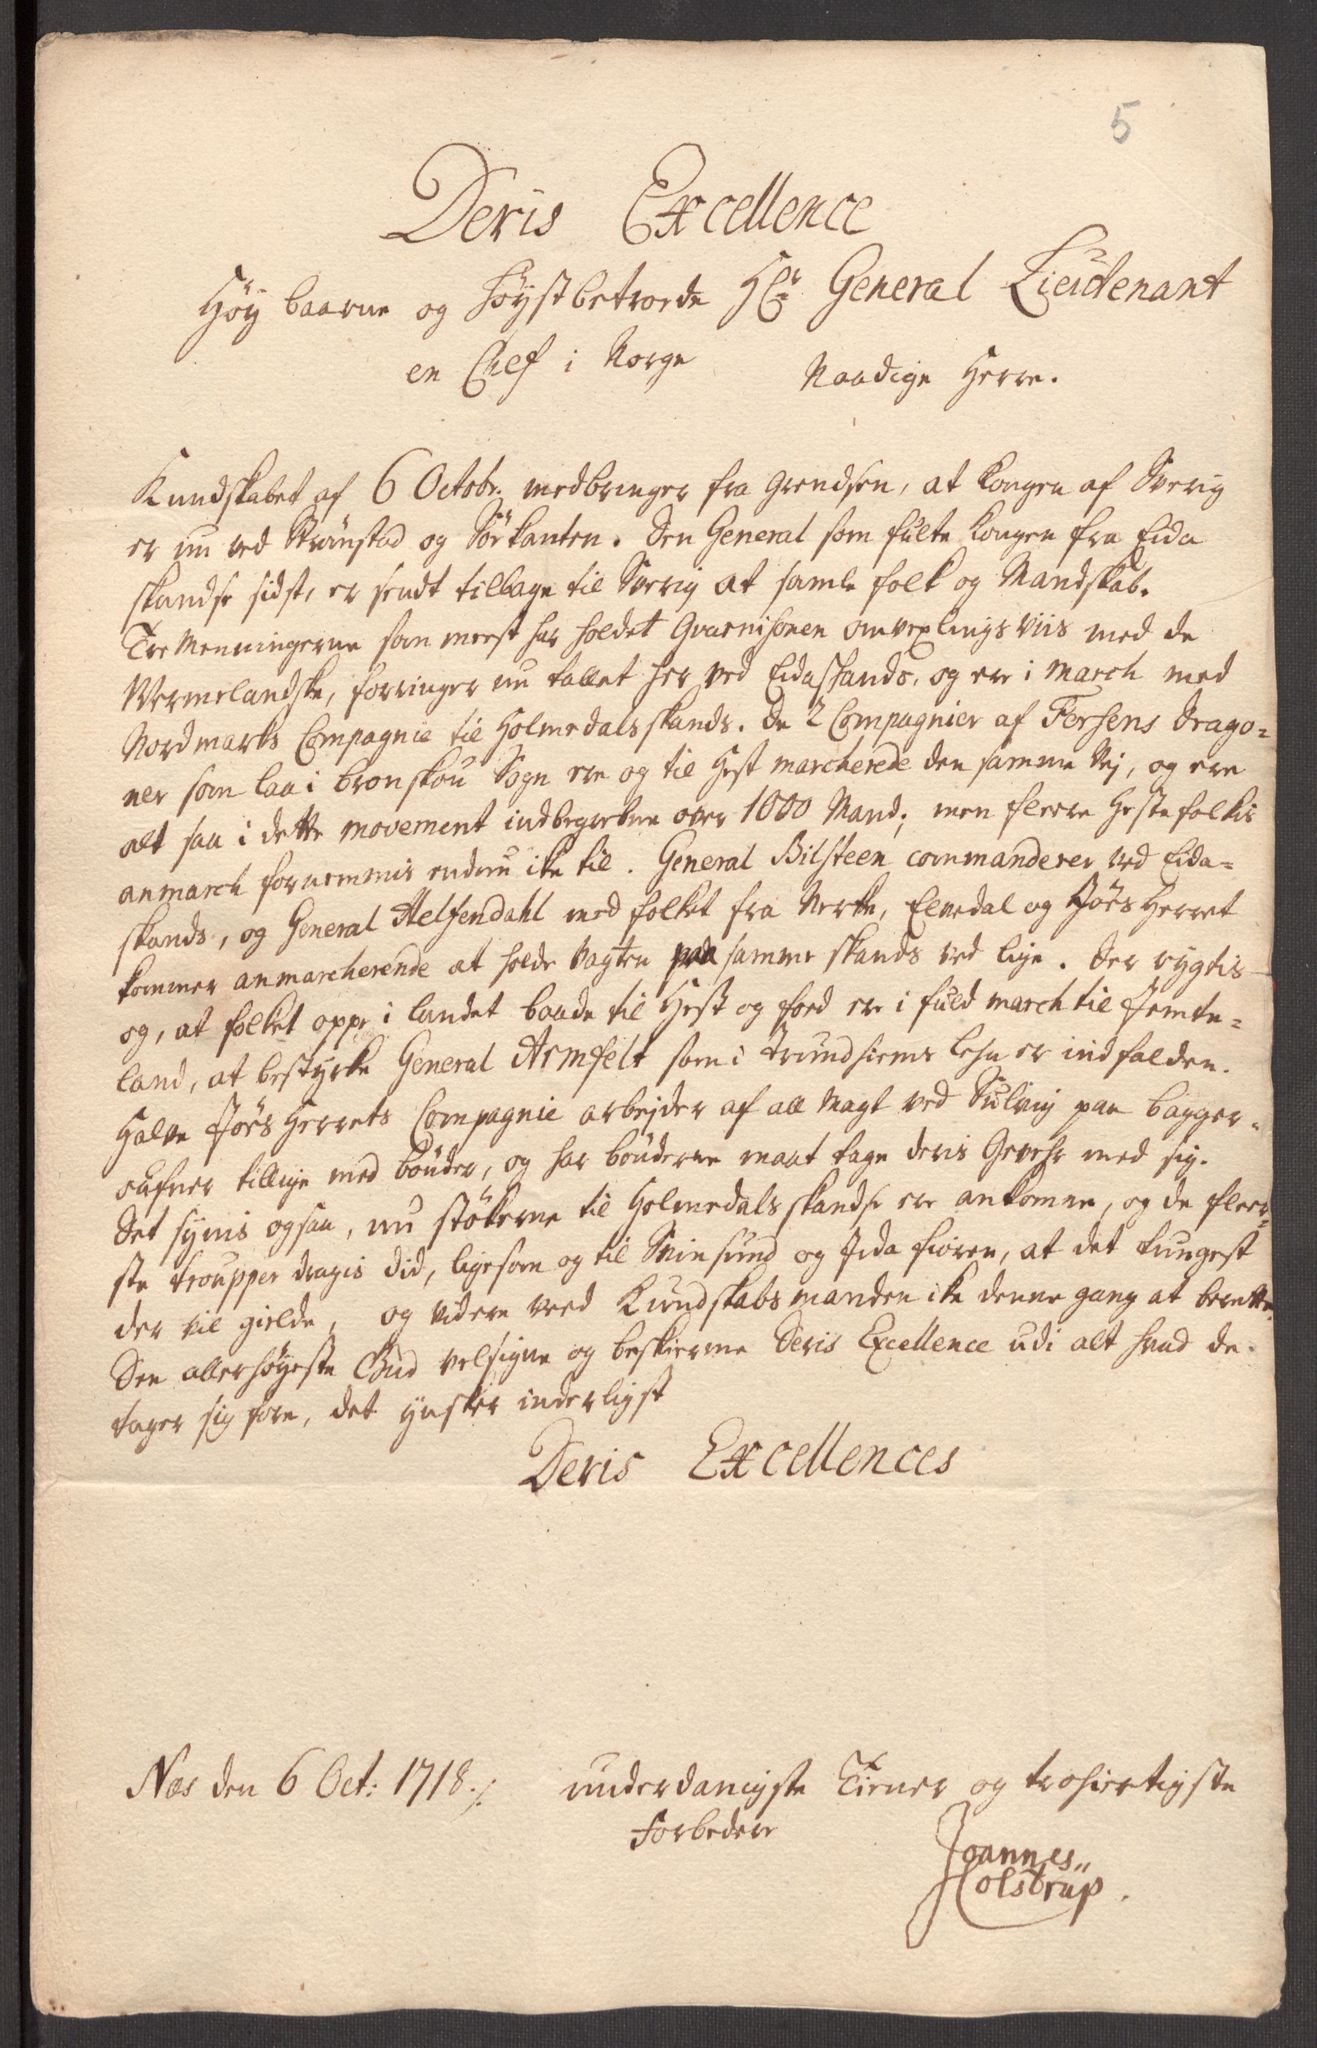 5
Deris Excellence
Höy baarne og höystbetroede Hr General Lieutenant
en Chef i Norge Naadige Herre.
Kundskabet af 6 Octobr. medbringer fra grendsen, at kongen af Sverig
er nu ved Strömstad og Sörkanten. Den General som fulte kongen fra Eida
skandse sidst, er sendt tilbage til Sverrig at samle folk og Mandskab.
Tre Menningerne som meest har holdet Gvarnisonen omvexlings viis med de
Wermelandske, forringer nu tallet her ved Eidaskands, og ere i march med
Nordmarks Compagnie til Holmedals skands. De 2 Compagnier af Fersens Drago-
ner som laa i bronskou Sogn ere og til Hest marcherede den samme Vej, og ere
alt saa i dette movement indbegrebne over 1000 Mand; men fleere Hestefolkis
anmarch fornemmis endnu ike til. General Bilsteen commanderer ved Eida-
skands, og General Aelfendahl med folket fra Nerke, Elvedal og Jörs Herret
kommer anmarcherende at holde Vagten paa samme skands ved lige. Der rygtis
og, at folket oppe i landet baade til Hest og foed er i fuld march til Jemte-
land, at bestyrke General Armfelt som i Trundhiems Lehn er indfalden.
Halve Jörs Herrets Compagnie arbejder af all Magt ved Sulvig paa bagger-
oufner tillige med bönder, og har bönderne maat tage deris Gevehr med sig.
Det synis ogsaa, nu stökerne til Holmedals skandse ere ankomne, og de fleer-
ste troupper dragis did, ligesom og til Svinsund og Ida fioren, at det tungest
der vil gielde, og videre veed Kundskabs manden ike denne gang at berette.
Den allerhöyeste Gud velsigne og beskierme Deris Excellence udi alt hvad de
tager sig fore, det ynsker inderligst
Deris Excellences
Næs den 6 Oct: 1718 ./. underdanigste Tiener og trohiertigste
forbedere
Joannes
Holstrup.